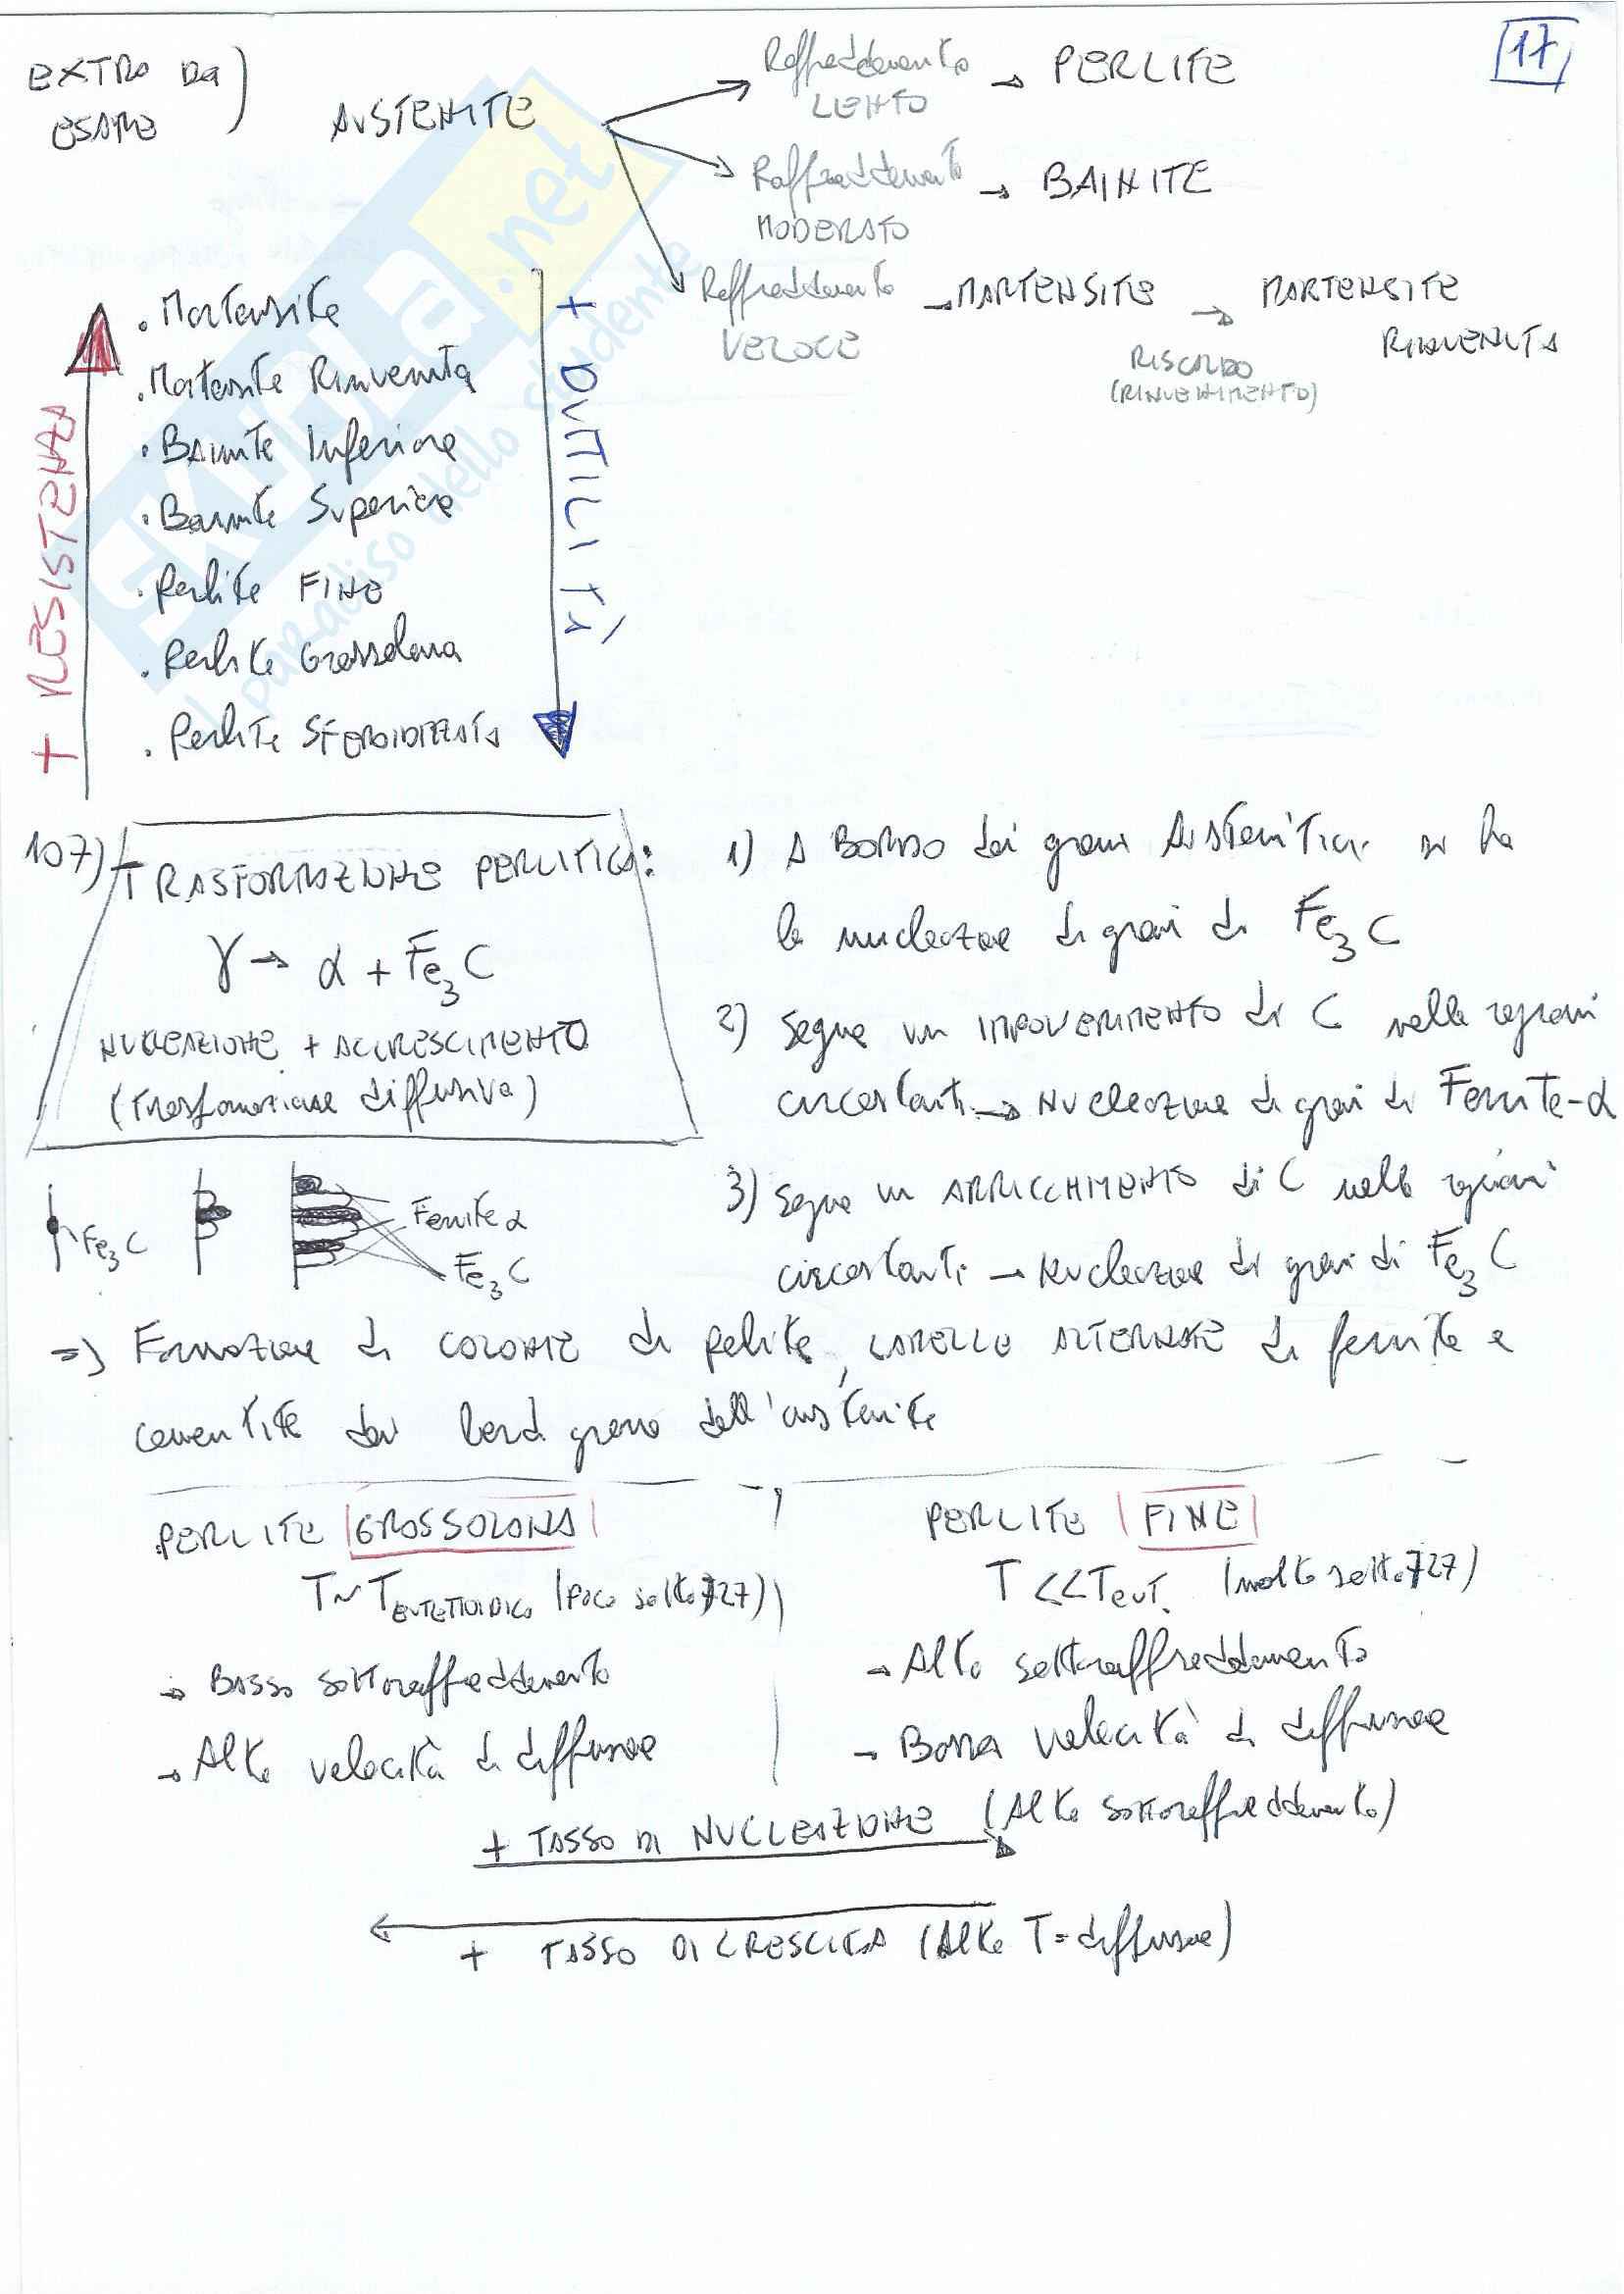 17
EXTRA DA ESAME)
AUSTENITE
Raffreddamento LENTO → PERLITE
Raffreddamento MODERATO → BAINITE
Raffreddamento VELOCE → MARTENSITE → MARTENSITE RINVENUTA
RISCALDO (RINVENIMENTO)
+ RESISTENZA
+ DUTTILITÀ
. Martensite
. Martensite Rinvenuta
. Bainite Inferiore
. Bainite Superiore
. Perlite FINE
. Perlite Grossolana
. Perlite SFEROIDIZZATA
SKUOLA.net
il paradiso dello studente
107) TRASFORMAZIONE PERLITICA:
γ → α + Fe3C
NUCLEAZIONE + ACCRESCIMENTO
(Trasformazione diffusiva)
1) A BORDO dei grani Austenitici si ha
la nucleazione di grani di Fe3C
2) Segue un IMPOVERIMENTO di C nelle regioni
circostanti → Nucleazione di grani di Ferrite-α
3) Segue un ARRICCHIMENTO di C nelle regioni
circostanti → Nucleazione di grani di Fe3C
Fe3C
Ferrite α
Fe3C
=> Formazione di COLONIE di perlite, LAMELLE ALTERNATE di ferrite e
cementite dai bordi grano dell'austenite
PERLITE GROSSOLANA
T~TEUTETTOIDICO (poco sotto 727)
→ Basso sottoraffreddamento
→ Alta velocità di diffusione
PERLITE FINE
T<<TEUT. (molto sotto 727)
→ Alto sottoraffreddamento
→ Bassa velocità di diffusione
+ TASSO DI NUCLEAZIONE (Alto sottoraffreddamento)
+ TASSO DI CRESCITA (Alta T = diffusione)